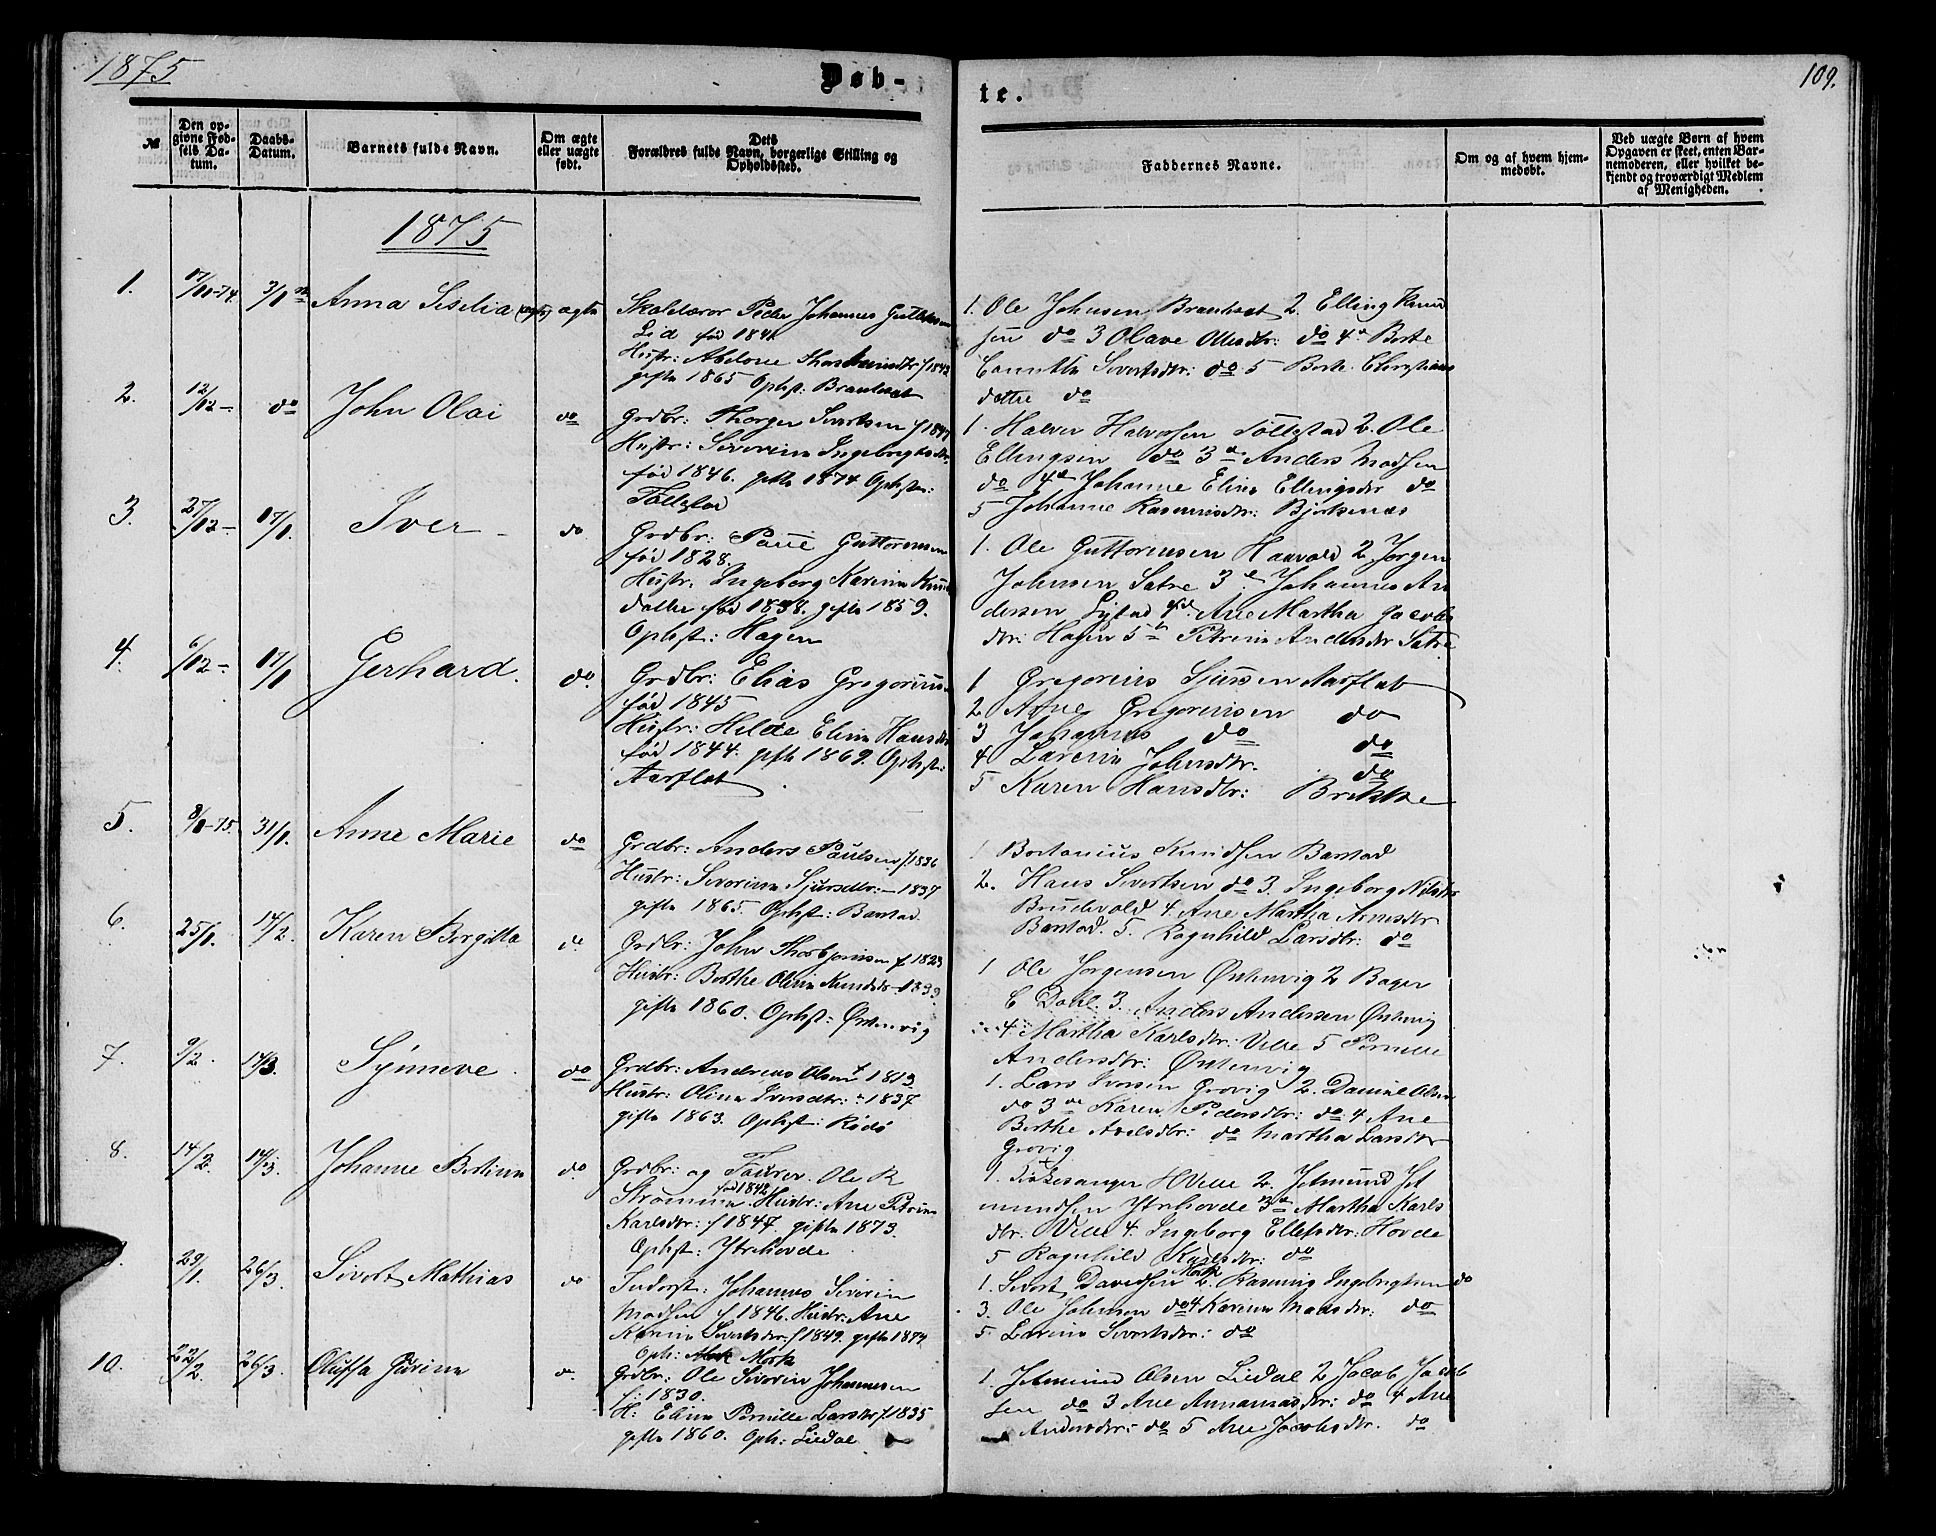 1875
Døb-
te.
109.
№
Den op-
givne Fød-
sels Da-
tum.
Daabs-
Datum.
Barnets fulde Navn.
Om ægte
eller uægte
født.
Dets
Forældres fulde Navn, borgerlige Stilling og
Opholdssted.
Faddernes Navne.
Om og af hvem hjem-
medøbt.
Ved uægte Børn af hvem
Opgaven er skeet, enten Bar-
nemoderen, eller hvilket be-
kjendt og troværdigt Medlem
af Menigheden.
1875
1.
3/1
Anna Siselia (ægte) ægte
Peder Johannes
Lid fød 1841
Hustr: Abelone
gifte 1865 Ophst:
1. Ole Johnsen 2. Elling Knud
sen do 3 Olave Olsdtr: do 4 Berte
Sivertsdtr: do 5 Berte Christians
dotter do
2.
12/12 –
do
John Olai
do
Grdbr: Thorger Sivertsen f 1847
Hustr: Sivrine Ingebrigtsdtr
fød 1846. gifte 1874 Ophst:
1. Halvor Halvorsen 2. Ole
Ellingsen do 3 Anders Madsen
do 4 Johanne Eline Ellingsdtr do
5 Johanne Rasmusdtr: Bjerkenæs
3.
27/12 –
17/1.
Iver
do
Grdbr: Paul Guttormsen
fød 1828.
Hustr: Ingeborg Karine Knud
datter fød 1838. gifte 1859.
Ophst: Hagen
1. Ole Guttormsen Haavold 2 Jørgen
Johnsen Sætre 3 Johannes An
dersen 4 Ane Martha Jacobs
dtr: Hagen 5 Petrine Andersdtr Sætre
4.
6/12 –
17/1
Gerhard.
do.
Grdbr: Elias Gregorius
fød 1845
Hustr: Hilde Eline Hansdtr
fød 1844. gifte 1869. Ophst:
Aarflot
1 Gregorius Sjursen Aarflot
2 Arne Gregoriusen do
3 Johannes do do
4 Larsine Johnsdtr. do
5 Karen Hansdtr: Brekke
5.
8/1–75.
31/1.
Anne Marie
do
Grdbr: Anders Paulsen f 1836
Hustr: Severine Sjursdtr: – 1837
gifte 1865. Ophst: Barstad.
1 Knudsen Barstad
2. Hans Sivertsen do 3. Ingeborg Nilsdtr
Brudevold 4 Ane Martha Arnesdtr
Barstad. 5. Ragnhild Larsdtr: do
6.
25/1.
14/2.
Karen Bergitta
do
Grdbr: John Thorbjørnsen f 1823
Hustr: Berthe Oline Knudsdtr – 1839.
gifte 1860. Ophst: Østenvig
1 Ole Jørgensen Østenvig 2 Bager
C Dahl. 3. Anders Andersen Østenvig
4 Martha Karlsdtr: Velle 5 Pernille
Andersdtr: Østenvig
7.
9/2.
14/3.
Synneve
do
Grdbr: Andreas Olsen f 1813
Hustr: Oline Iversdtr: – 1837
gifte 1863. Ophst: Rødø
1. Lars Iversen Grøvig 2. Daniel Olsen
do 3 Karen Pedersdtr: do 4 Ane
Berthe Axelsdtr: do Martha Larsdtr
Grøvig
8.
14/2.
14/3.
Johanne Bertine
do
Grdbr: og Farver. Ole R
Strømme fød 1842. Hustr: Ane Petrine
Karlsdtr: f 1847. gifte 1873.
Ophst: Ytrehovde
1. Kirkesanger H Velle 2. Jetmund Jet
mundsen Ytrehovde 3 Martha Karls
dtr. Velle 4. Ingeborg Ellefsdtr: Hovde
5 Ragnhild Karlsdtr: do
29/1.
26/3.
Sivert Mathias
do
Inderst: Johannes Siverin
Madsen f 1846. Hustr: Ane
Karine Sivertsdtr f 1849. gifte 1874
Oph: Mork
1. Sivert Davidsen Mork 2. Rasmus Ingebrigtsen do
3. Ole Johnsen do 4 Karine Madsdtr: do
5. Larine Sivertsdtr: do
10.
22/2.
26/3.
Oluffa Gurine
do
Grdbr: Ole Siverin Johannesen
f: 1830.
H: Eline Pernille Larsdtr f 1835
gifte 1860. Oph: Liedal
1. Jetmund Olsen Liedal 2 Jacob Jacob
sen do 3 Ane Annanæsdtr: do 4 Ane
Andersdtr: do 5 Ane Jacobsdtr. do